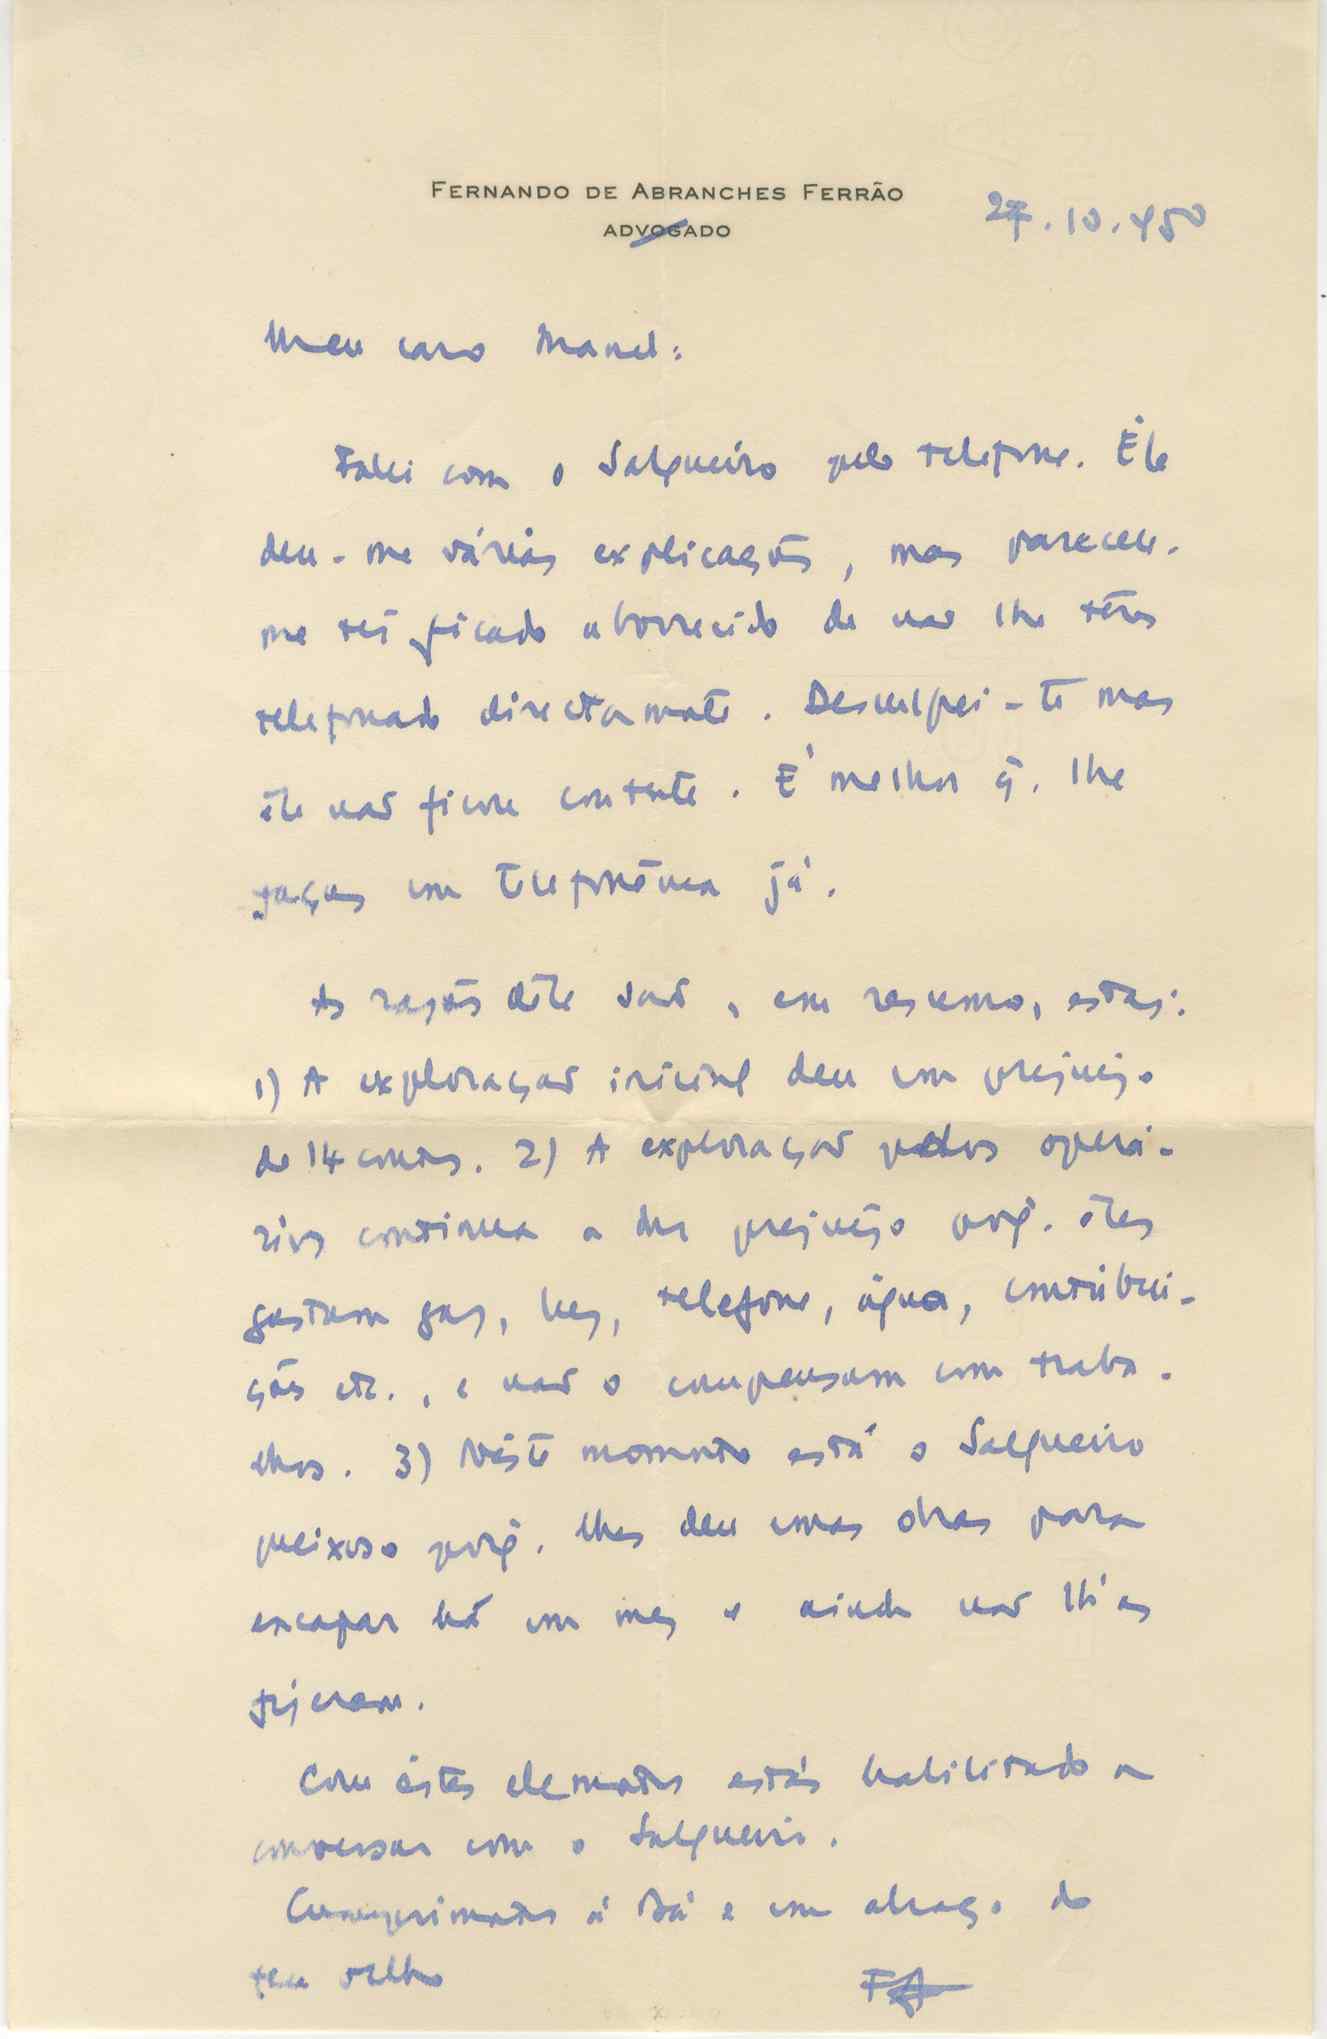 FERNANDO DE ABRANCHES FERRÃO
ADVOGADO
27.10.950
Meu caro Manel:
Falei com o Salgueiro pelo telefone. Êle
deu-me várias explicações, mas pareceu-
me ter ficado aborrecido de não lhe têres
telefonado directamente. Desculpei-te mas
êle não ficou contente. É melhor q. lhe
faças um telefonema já.
As razões dêle são, em resumo, estas:
1) A exploração inicial deu um prejuízo
de 14 contos. 2) A exploração pelos operá-
rios continua a dar prejuízo porq. êles
gastam gas, luz, telefone, água, contribui-
ções etc., e não o compensam com traba-
lhos. 3) Nêste momento está o Salgueiro
queixoso porq. lhes deu umas obras para
encapar há um mez e ainda não lh'as
fizeram.
Com êstes elementos estás habilitado a
conversar com o Salgueiro.
Cumprimentos à Bá e um abraço do
teu velho
FA